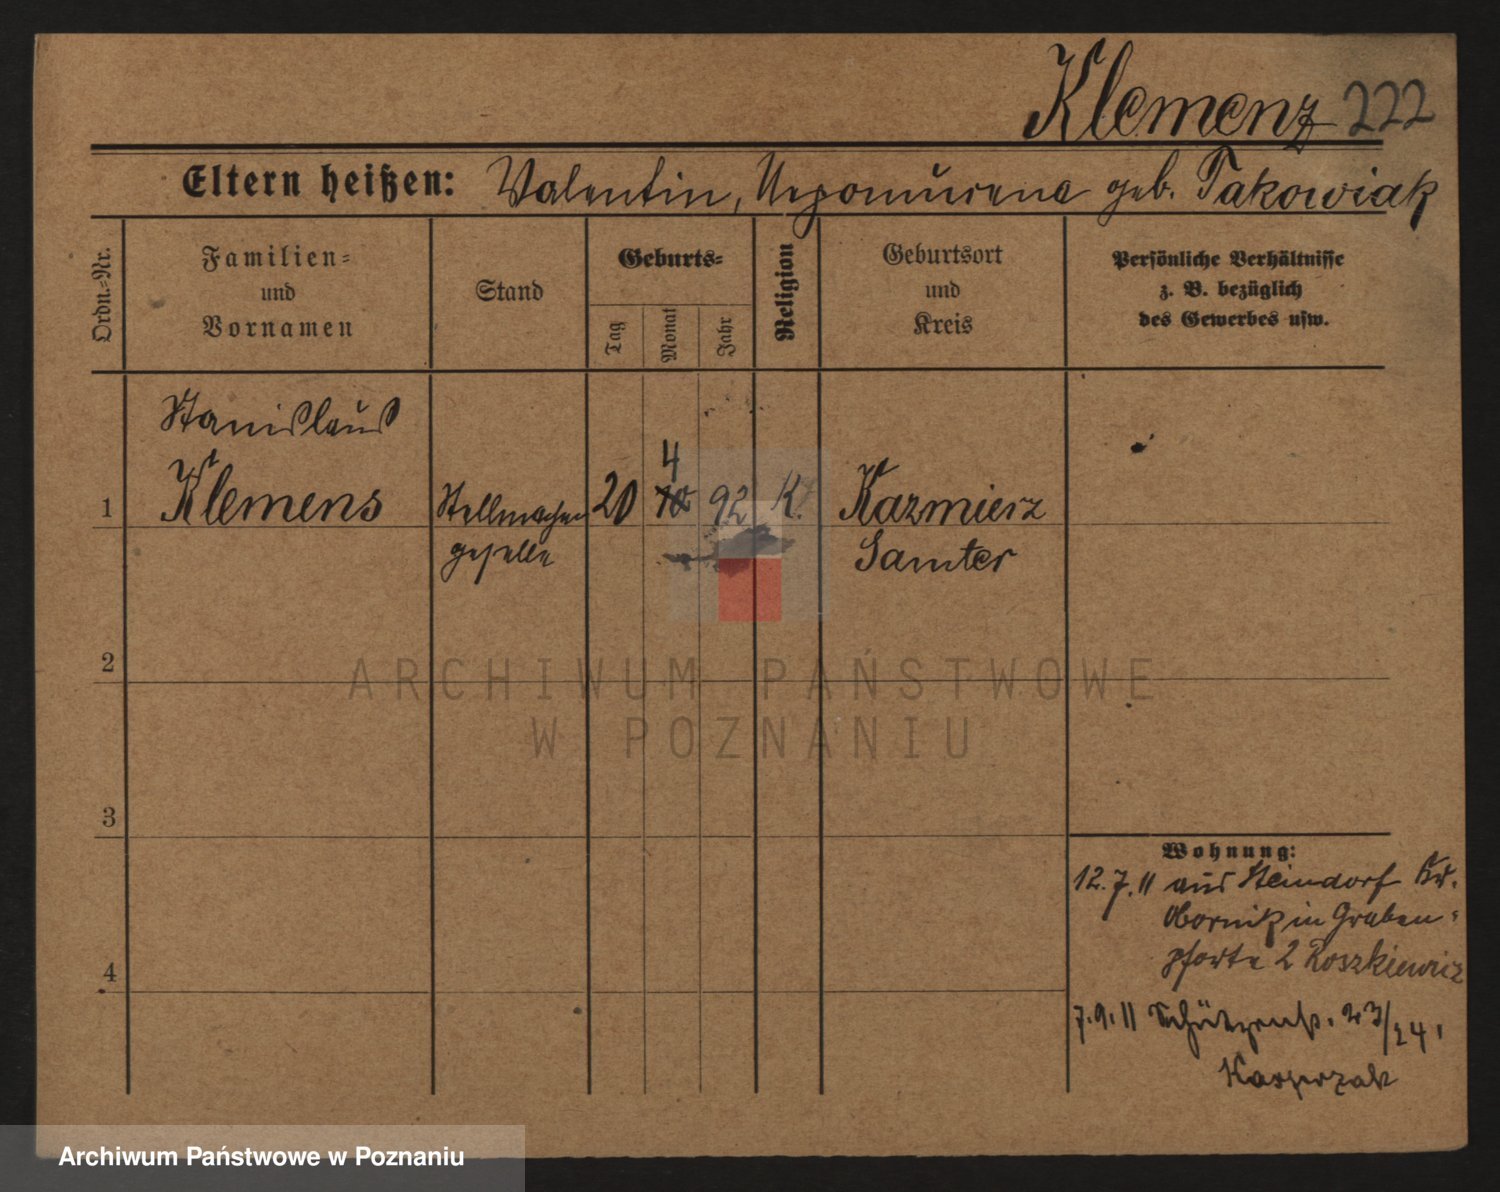 Klemenz 222
Eltern heißen: Valentin, Nepomucena geb. Takowiak
Ordn.-Nr.
Familien-
und
Vornamen
Stand
Geburts-
Tag
Monat
Jahr
Religion
Geburtsort
und
Kreis
Persönliche Verhältnisse
z. B. bezüglich
des Gewerbes usw.
Stanislaus
1 Klemens Stellmacher 20 4 92 K. Kazmierz
geselle Samter
2
3
4
Wohnung:
12.7.11 aus Steindorf Kr.
Obornik in Graben-
pforte 2 Roszkiewicz
7.9.11 Schützenstr. 23/24.
Kasprzak
ARCHIWUM PAŃSTWOWE
W POZNANIU
Archiwum Państwowe w Poznaniu